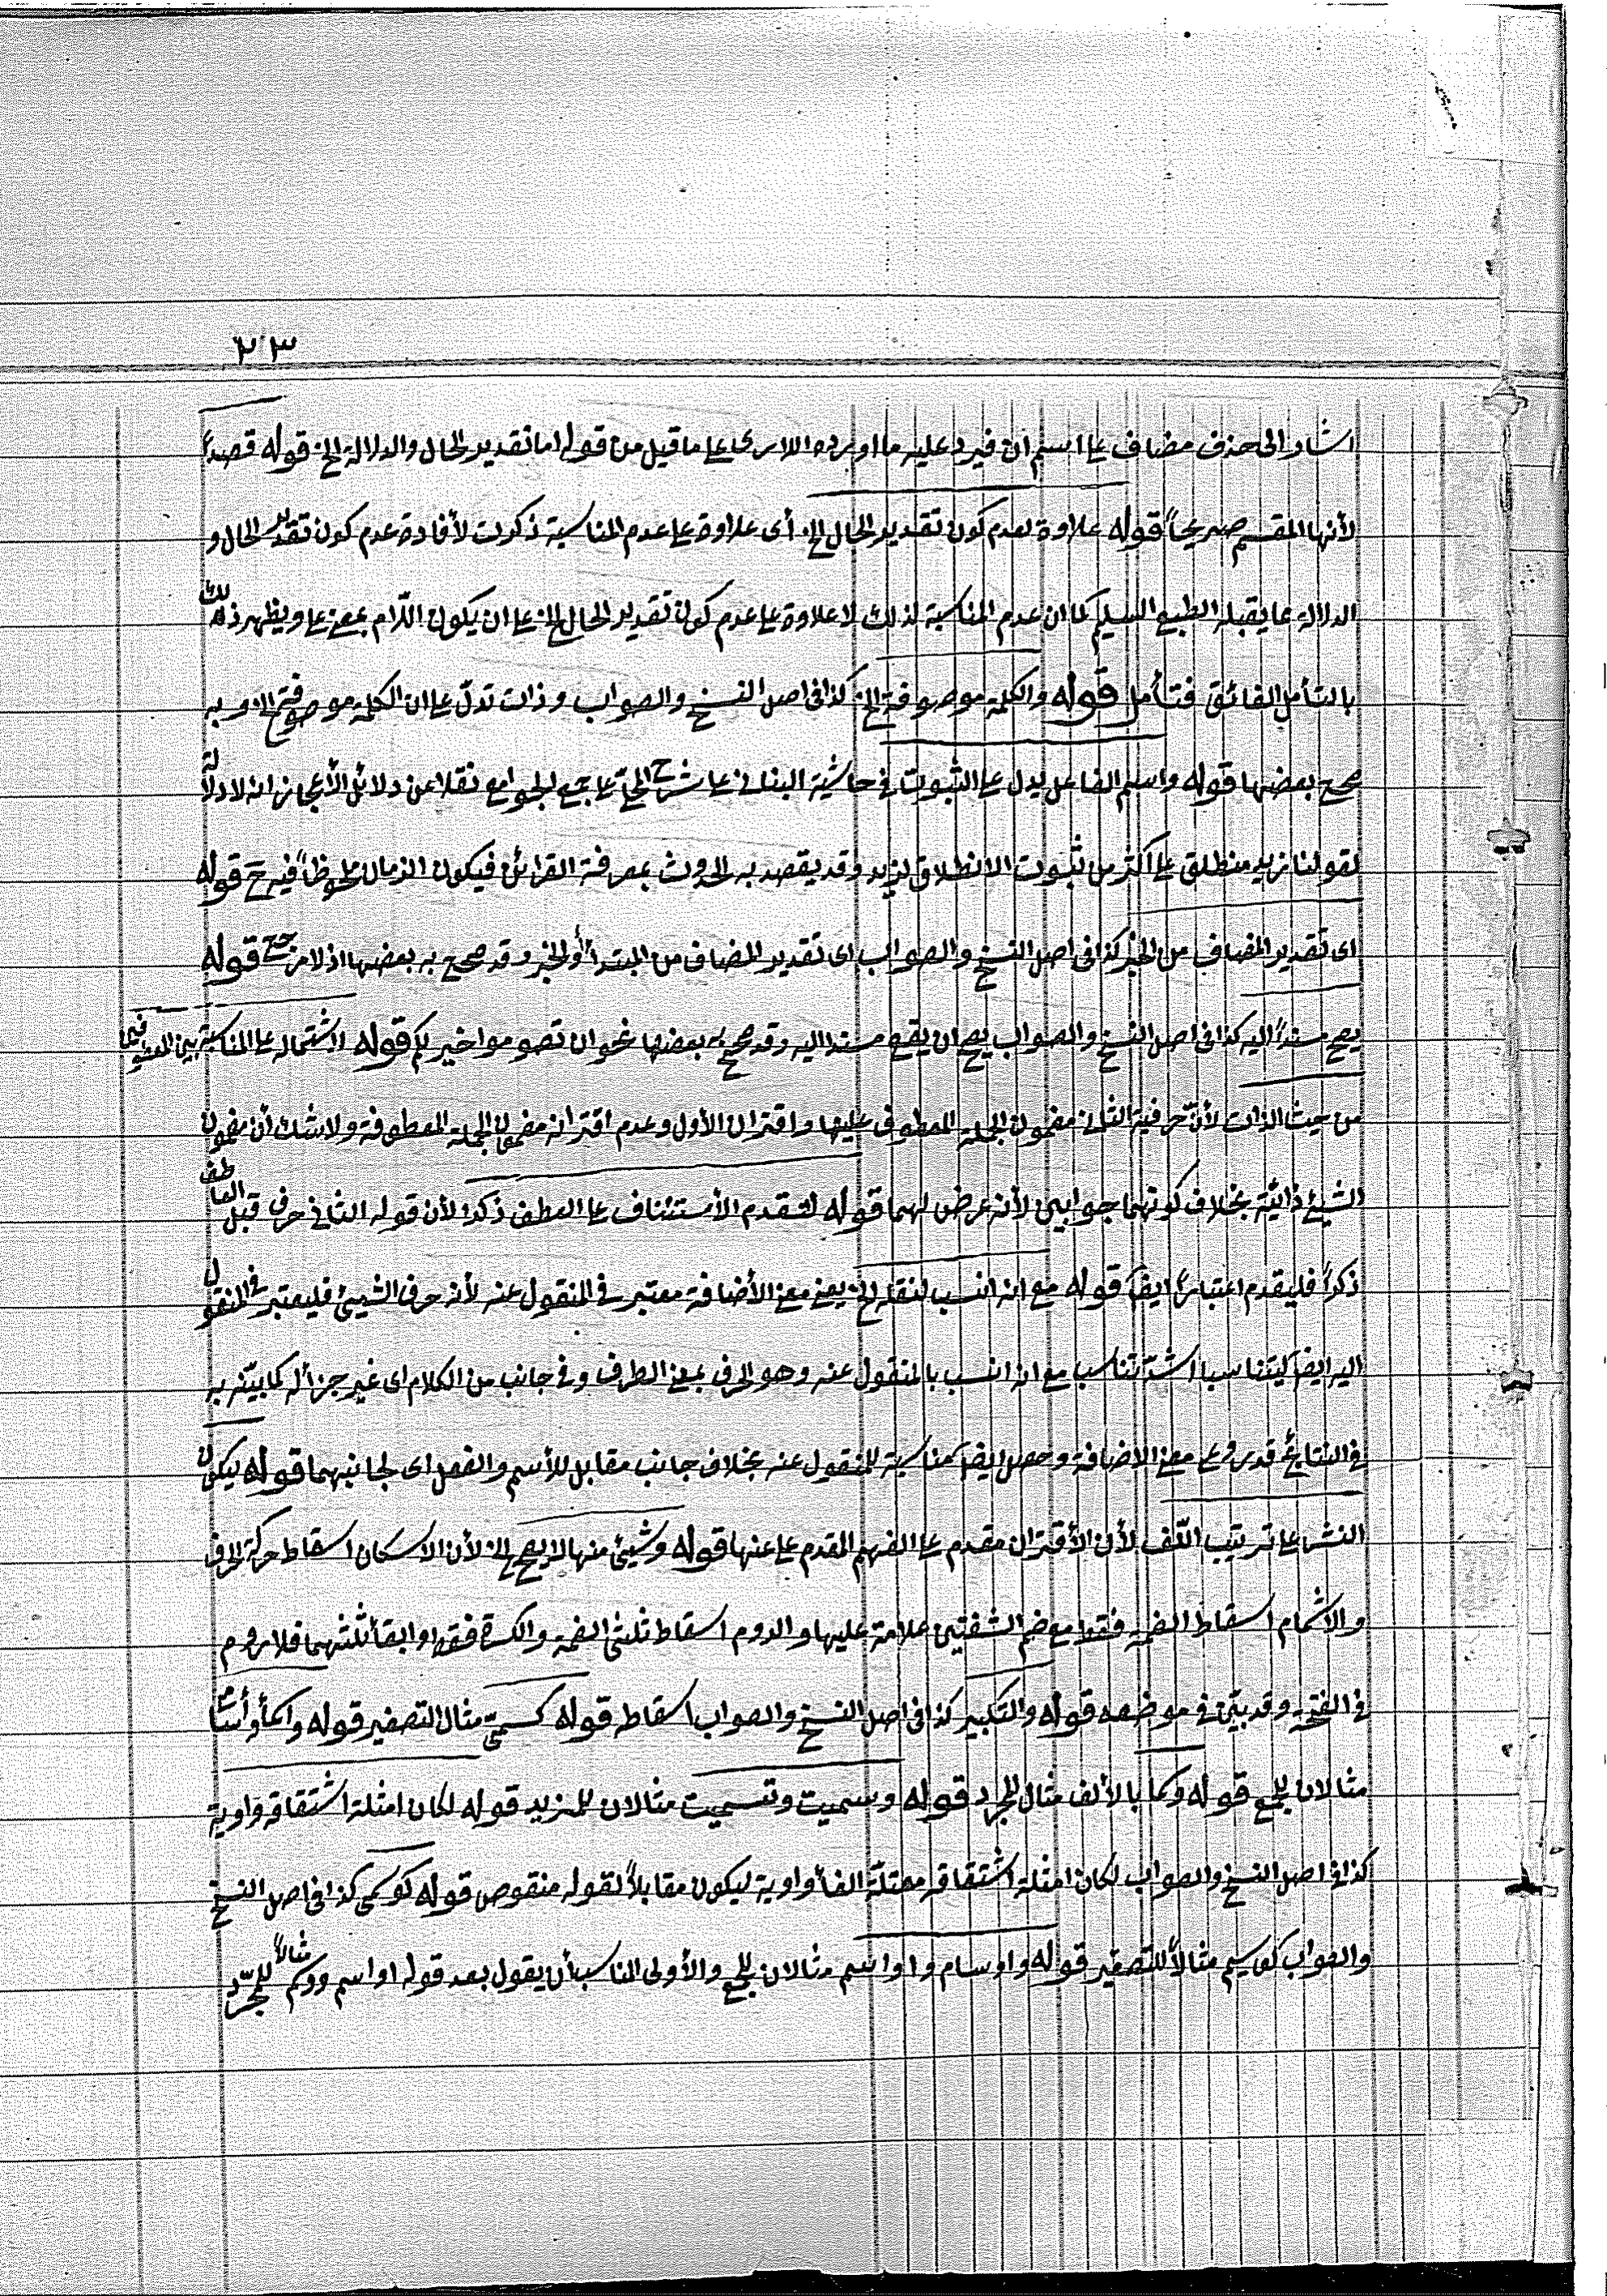 ٢٣
اشار الى حذف مضاف على اسم ان فيرد عليه ما اورده اللارى على ما قيل من قوله اما تقدير الحال والدلالة الخ قوله قصداً
لأنها المقسم صريحاً قوله علاوة لعدم كون تقدير الحال الخ أى علاوة على عدم المناسبة ذكرت لأفادة عدم كون تقدير الحال و
الدلالة مما يقبله الطبع السليم كما ان عدم المناسبة لذلك لا علاوة على عدم كون تقدير الحال الخ على ان يكون اللّام بمعنى على ويظهر ذلك
بالتأمل الفائق فتأمل قوله والكلمة موصوفة الخ كذا فى اصل النسخ والصواب وذات تدلّ على ان الكلمة موصوفة الخ وبه
صحح بعضها قوله واسم الفاعل يدل على الثبوت فى حاشية البنانى على شرح المحلّى على جمع الجوامع نقلا عن دلائل الأعجاز انه لا دلالة
لقولنا زيد منطلق على اكثر من ثبوت الانطلاق لزيد وقد يقصد به الحدوث بمعرفة القرائن فيكون الزمان ملحوظاً فيه ح قوله
اى تقدير المضاف من الخبر كذا فى اصل النسخ والصواب اى تقدير المضاف من المبتدأ أو الخبر وقد صحح به بعضها اذ لا مرجح قوله
يصح مسنداً اليه كذا فى اصل النسخ والصواب يصح ان يقع مسندا اليه وقد صحح به بعضها نحو ان تصوموا خير لكم قوله لاشتماله على المناسبة بين المعطوف فيما
من حيث الذات لأنّ حرفية الثانى مضمون الجملة المعطوف عليها واقتران الأول وعدم اقترانه مضمون الجملة المعطوفة ولا شك أن مضمون
الشيئ ذاتيّة بخلاف كونهما جوابين لأنه عرض لهما قوله لتقدم الأستئناف على العطف ذكرا لأن قوله الثانى حرف قبل العاطف
ذكراً فليقدم اعتباراً ايضاً قوله مع انه انسب لنقله الخ يعنى معنى الأضافة معتبر فى المنقول عنه لأنه حرف الشيئ فليعتبر فى المنقول
اليه ايضاً ليتناسبا اشدّ تناسب مع انه انسب بالمنقول عنه وهو الحرف بمعنى الطرف وفى جانب من الكلام اى غير جزأ له كما بيّنه به
فى النتائج قد روعى معنى الاضافة وحصل ايضاً مناسبة للمنقول عنه بخلاف جانب مقابل للأسم والفعل اى لجانبهما قوله ليكون
النشر على ترتيب اللّف لأن الأقتران مقدم على الفهم المقدم على عنها قوله وشيئ منها لا يصح الخ لأن الاسكان اسقاط حركة الحرف
والاشمام اسقاط الضمة فقط مع ضم الشفتين علامة عليها والروم اسقاط ثلثى الضمة والكسرة فقط وابقأ ثلثهما فلا روم
فى الفتحة وقد بيّن فى موضعه قوله والتكبير كذا فى اصل النسخ والصواب اسقاطه قوله كسمىّ مثال التصغير قوله واسمأ وأسام
مثالان للجمع قوله وسما بالألف مثال المجرد قوله وسميت وتسميت مثالان للمزيد قوله لكان امثلة اشتقاقه واوية
كذا فى اصل النسخ والصواب لكان امثلة اشتقاقه معتلّة الفأ واوية ليكون مقابلاً لقوله منقوص قوله كوسمى كذا فى اصل النسخ
والصواب كوسيم مثالاً للتصغير قوله واوسام واواسم مثالان للجمع والأولى المناسب أن يقول بعد قوله اواسم ووسم مثالاً للمجرّد